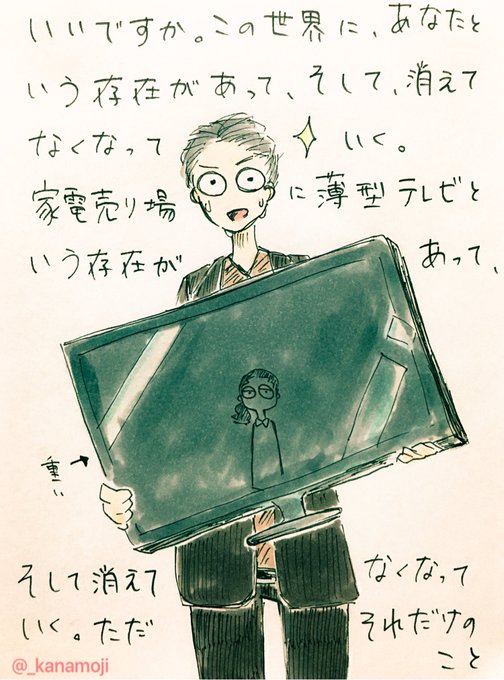 いいですか。この世界に、あなたと
いう存在があって、そして、消えて
なくなって いく。
家電売り場 に薄型テレビと
いう存在が あって、
重い
そして消えて なくなって
いく。ただ それだけの
こと
@_kanamoji